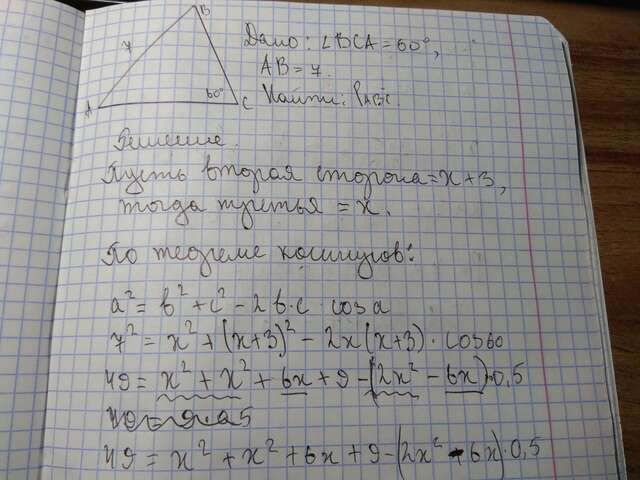 B
7
A
60°
C
Дано: ∠BCA = 60°,
AB = 7.
Найти: P ABC.
Решение.
Пусть вторая сторона = x + 3,
тогда третья = x.
По теореме косинусов:
a² = b² + c² - 2b·c cos a
7² = x² + (x+3)² - 2x(x+3) · cos 60
49 = x² + x² + 6x + 9 - (2x² - 6x)·0,5
49 = x² + x² + 6x + 9 - (2x² - 6x)·0,5